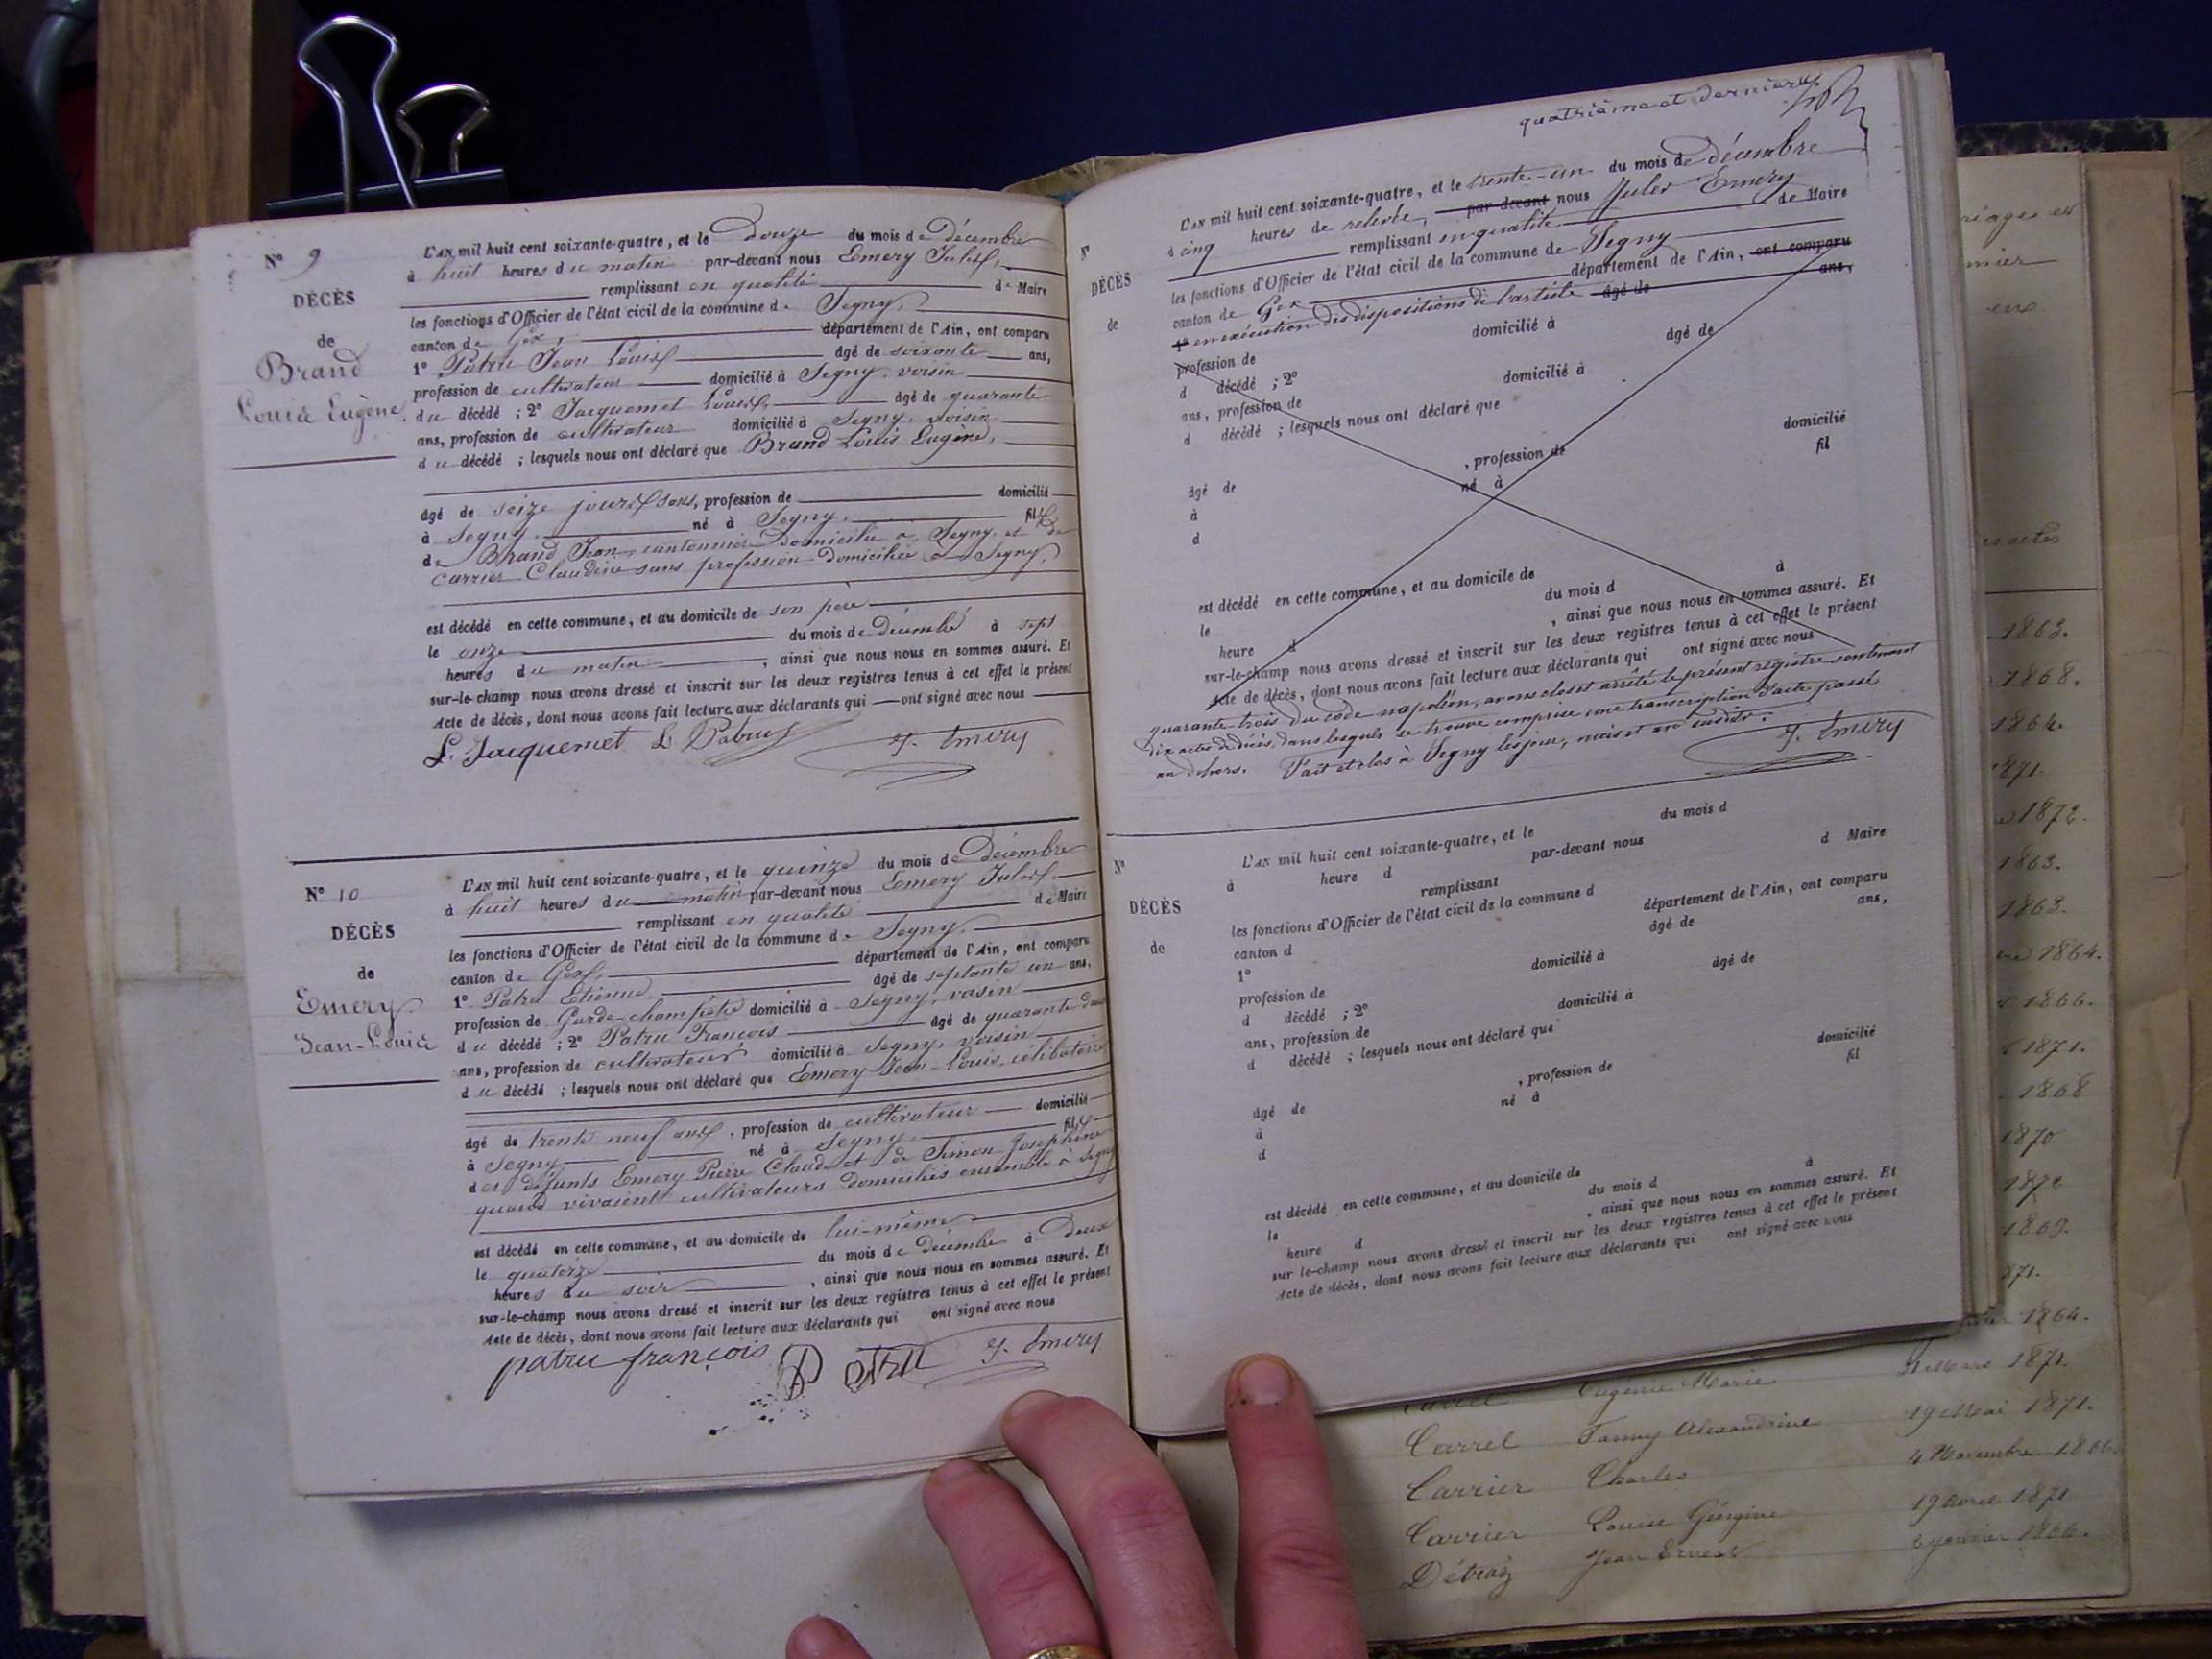 N° 9
DÉCÈS
de
Brand
Louis Eugène
L'AN mil huit cent soixante-quatre, et le Douze du mois de Décembre
à huit heures du matin par-devant nous Emery Jules,
remplissant en qualité de Maire
les fonctions d'Officier de l'état civil de la commune de Segny,
canton de Gex, département de l'Ain, ont comparu
1° Patru Jean Louis âgé de soixante ans,
profession de cultivateur domicilié à Segny, voisin
du décédé ; 2° Jacquemet Louis, âgé de quarante
ans, profession de cultivateur domicilié à Segny, voisin
du décédé ; lesquels nous ont déclaré que Brand Louis Eugène,
âgé de seize jours, sans, profession de domicilié
à Segny, né à Segny, fils
de Brand Jean cantonnier domicilié à Segny et de
Carrier Claudine sans profession domiciliée à Segny,
est décédé en cette commune, et au domicile de son père
le onze du mois de Décembre à sept
heures du matin, ainsi que nous nous en sommes assuré. Et
sur-le-champ nous avons dressé et inscrit sur les deux registres tenus à cet effet le présent
Acte de décès, dont nous avons fait lecture aux déclarants qui ont signé avec nous
L. Jacquemet L Patru J. Emery
N° 10
DÉCÈS
de
Emery
Jean-Louis
L'AN mil huit cent soixante-quatre, et le quinze du mois de Décembre
à huit heures du matin par-devant nous Emery Jules,
remplissant en qualité de Maire
les fonctions d'Officier de l'état civil de la commune de Segny,
canton de Gex, département de l'Ain, ont comparu
1° Patru Etienne, âgé de septante un ans,
profession de Garde-champêtre domicilié à Segny, voisin
du décédé ; 2° Patru François âgé de quarante deux
ans, profession de cultivateur domicilié à Segny, voisin
du décédé ; lesquels nous ont déclaré que Emery Jean-Louis, célibataire
âgé de trente neuf ans, profession de cultivateur domicilié
à Segny né à Segny, fils
des défunts Emery Pierre Claude et de Simon Joséphine
quand vivaient cultivateurs domiciliés ensemble à Segny
est décédé en cette commune, et au domicile de lui-même
le quatorze du mois de Décembre à Deux
heures du soir, ainsi que nous nous en sommes assuré. Et
sur-le-champ nous avons dressé et inscrit sur les deux registres tenus à cet effet le présent
Acte de décès, dont nous avons fait lecture aux déclarants qui ont signé avec nous
patru françois P atru J. Emery
quatrième et dernier
N°
DÉCÈS
de
L'AN mil huit cent soixante-quatre, et le trente-un du mois de décembre
à cinq heures de relevée, par-devant nous Jules Emery
remplissant en qualité de Maire
les fonctions d'Officier de l'état civil de la commune de Segny
canton de Gex département de l'Ain, ont comparu
1° en exécution des dispositions de l'article âgé de ans,
profession de domicilié à
d décédé ; 2° âgé de
ans, profession de domicilié à
d décédé ; lesquels nous ont déclaré que
âgé de , profession de domicilié
à né à fil
d
est décédé en cette commune, et au domicile de
le du mois d à
heure d , ainsi que nous nous en sommes assuré. Et
sur-le-champ nous avons dressé et inscrit sur les deux registres tenus à cet effet le présent
Acte de décès, dont nous avons fait lecture aux déclarants qui ont signé avec nous
quarante trois du code napoléon, avons clos et arrêté le présent registre contenant
dix actes de décès, dans lesquels se trouve comprise une transcription d'acte passé
au dehors. Fait et clos à Segny les jour, mois et an susdits.
J. Emery
N°
DÉCÈS
de
L'AN mil huit cent soixante-quatre, et le du mois d
à heure d par-devant nous
remplissant d Maire
les fonctions d'Officier de l'état civil de la commune d
canton d département de l'Ain, ont comparu
1° âgé de ans,
profession de domicilié à
d décédé ; 2° âgé de
ans, profession de domicilié à
d décédé ; lesquels nous ont déclaré que
âgé de , profession de domicilié
à né à fil
d
est décédé en cette commune, et au domicile de
le du mois d à
heure d , ainsi que nous nous en sommes assuré. Et
sur le-champ nous avons dressé et inscrit sur les deux registres tenus à cet effet le présent
Acte de décès, dont nous avons fait lecture aux déclarants qui ont signé avec nous
1863.
1868.
1864.
1871.
1872.
1863.
1863.
1864.
1866.
1871.
1868
1870
1872
1869.
871.
1864.
Eugénie Marie Mars 1871.
Carrel Fanny Alexandrine 19 Mai 1871.
Carrier Charles 4 Novembre 1866.
Carrier Louise Géorgine 19 Avril 1871
Détraz Jean Ernest Janvier 1866.